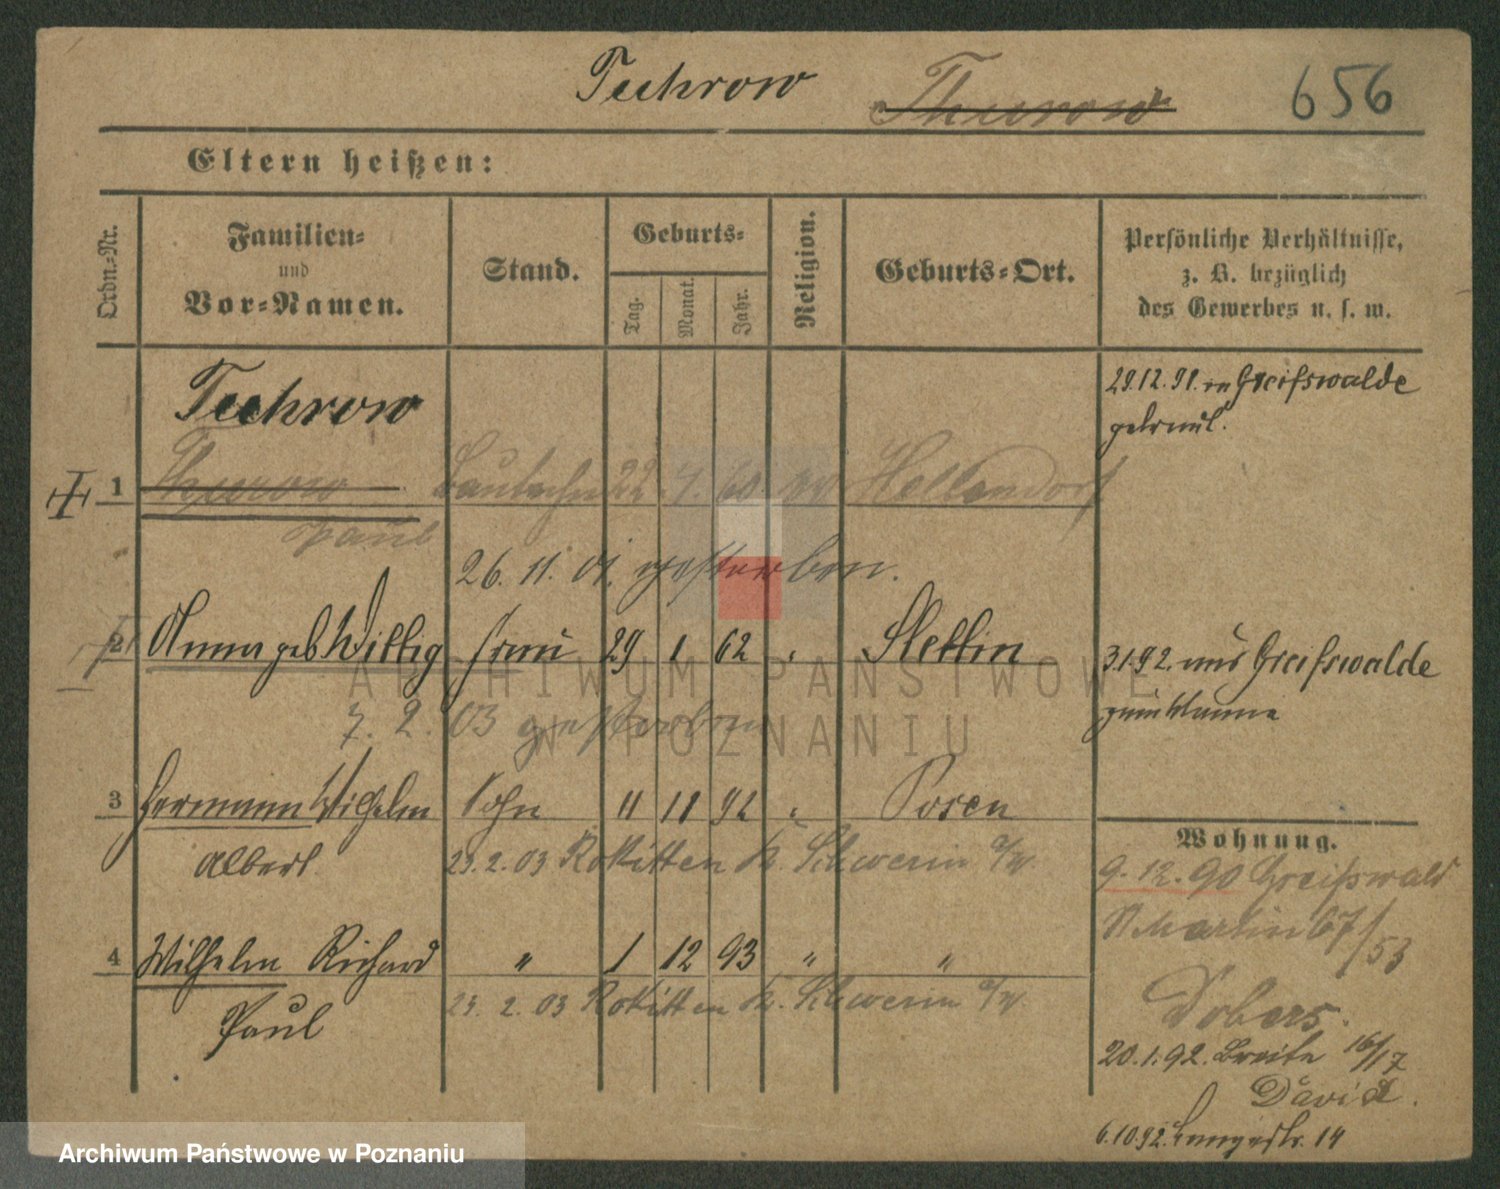 Techrow Thurow 656
Eltern heißen:
Ordn.-Nr.
Familien-
und
Vor-Namen.
Stand.
Geburts-
Tag.
Monat.
Jahr.
Religion.
Geburts-Ort.
Persönliche Verhältnisse,
z. B. bezüglich
des Gewerbes u. s. w.
Techrow
29.12.91. in Greifswalde
getraut.
1 Thurow 22 7. 60 Hellendorf
Paul
26. 11. 01. gestorben.
2 Anna geb Willig Frau 29 1 62 Stettin
3.1.92. aus Greifswalde
7. 2. 03 gestorben
3 Hermann Wilhelm Sohn 11 11 92 Posen
Albert
23.2.03 Rokitten Kr. Schwerin a/W.
4 Wilhelm Richard " 1 12 93 " "
Paul
23. 2. 03 Rokitten Kr. Schwerin a/W.
Wohnung.
9. 12. 90 Greifswald
St Martin 67/53
Dobers.
20.1.92. Breite 16/17
David.
6.10.92. Langestr. 14
ARCHIWUM PAŃSTWOWE
W POZNANIU
Archiwum Państwowe w Poznaniu